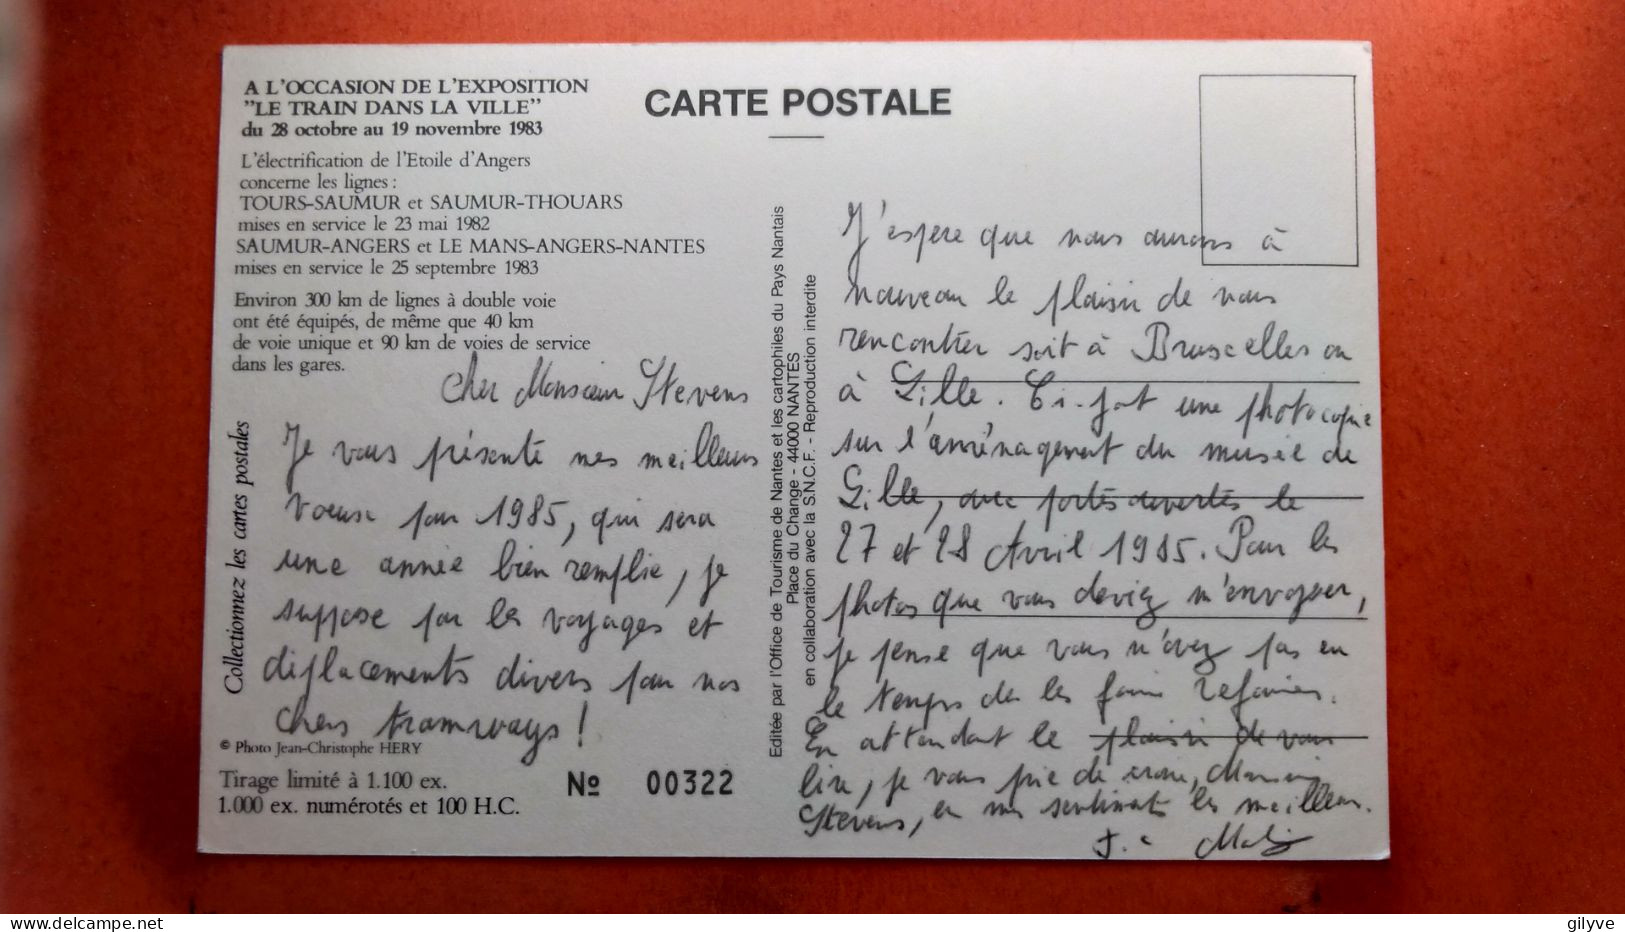 A L'OCCASION DE L'EXPOSITION
"LE TRAIN DANS LA VILLE"
du 28 octobre au 19 novembre 1983
L'électrification de l'Etoile d'Angers
concerne les lignes :
TOURS-SAUMUR et SAUMUR-THOUARS
mises en service le 23 mai 1982
SAUMUR-ANGERS et LE MANS-ANGERS-NANTES
mises en service le 25 septembre 1983
Environ 300 km de lignes à double voie
ont été équipés, de même que 40 km
de voie unique et 90 km de voies de service
dans les gares.
Cher Monsieur Stevens
Je vous présente mes meilleurs
voeux pour 1985, qui sera
une année bien remplie, je
suppose par les voyages et
déplacements divers pour nos
chers tramways !
Collectionnez les cartes postales
© Photo Jean-Christophe HERY
Tirage limité à 1.100 ex.
1.000 ex. numérotés et 100 H.C.
Nº 00322
Editée par l'Office de Tourisme de Nantes et les cartophiles du Pays Nantais
Place du Change - 44000 NANTES
en collaboration avec la S.N.C.F. - Reproduction interdite
CARTE POSTALE
J'espère que nous aurons à
nouveau le plaisir de nous
rencontrer soit à Bruxelles ou
à Lille. Ci-jot une photocopie
sur l'aménagement du musée de
Lille, avec portes ouvertes le
27 et 28 Avril 1985. Pour les
photos que vous deviez m'envoyer,
je pense que vous n'avez pas eu
le temps de les faire refaire.
En attendant le plaisir de vous
lire, je vous prie de croire, Monsieur
Stevens, en mes sentiments les meilleurs.
J.C
gilyve